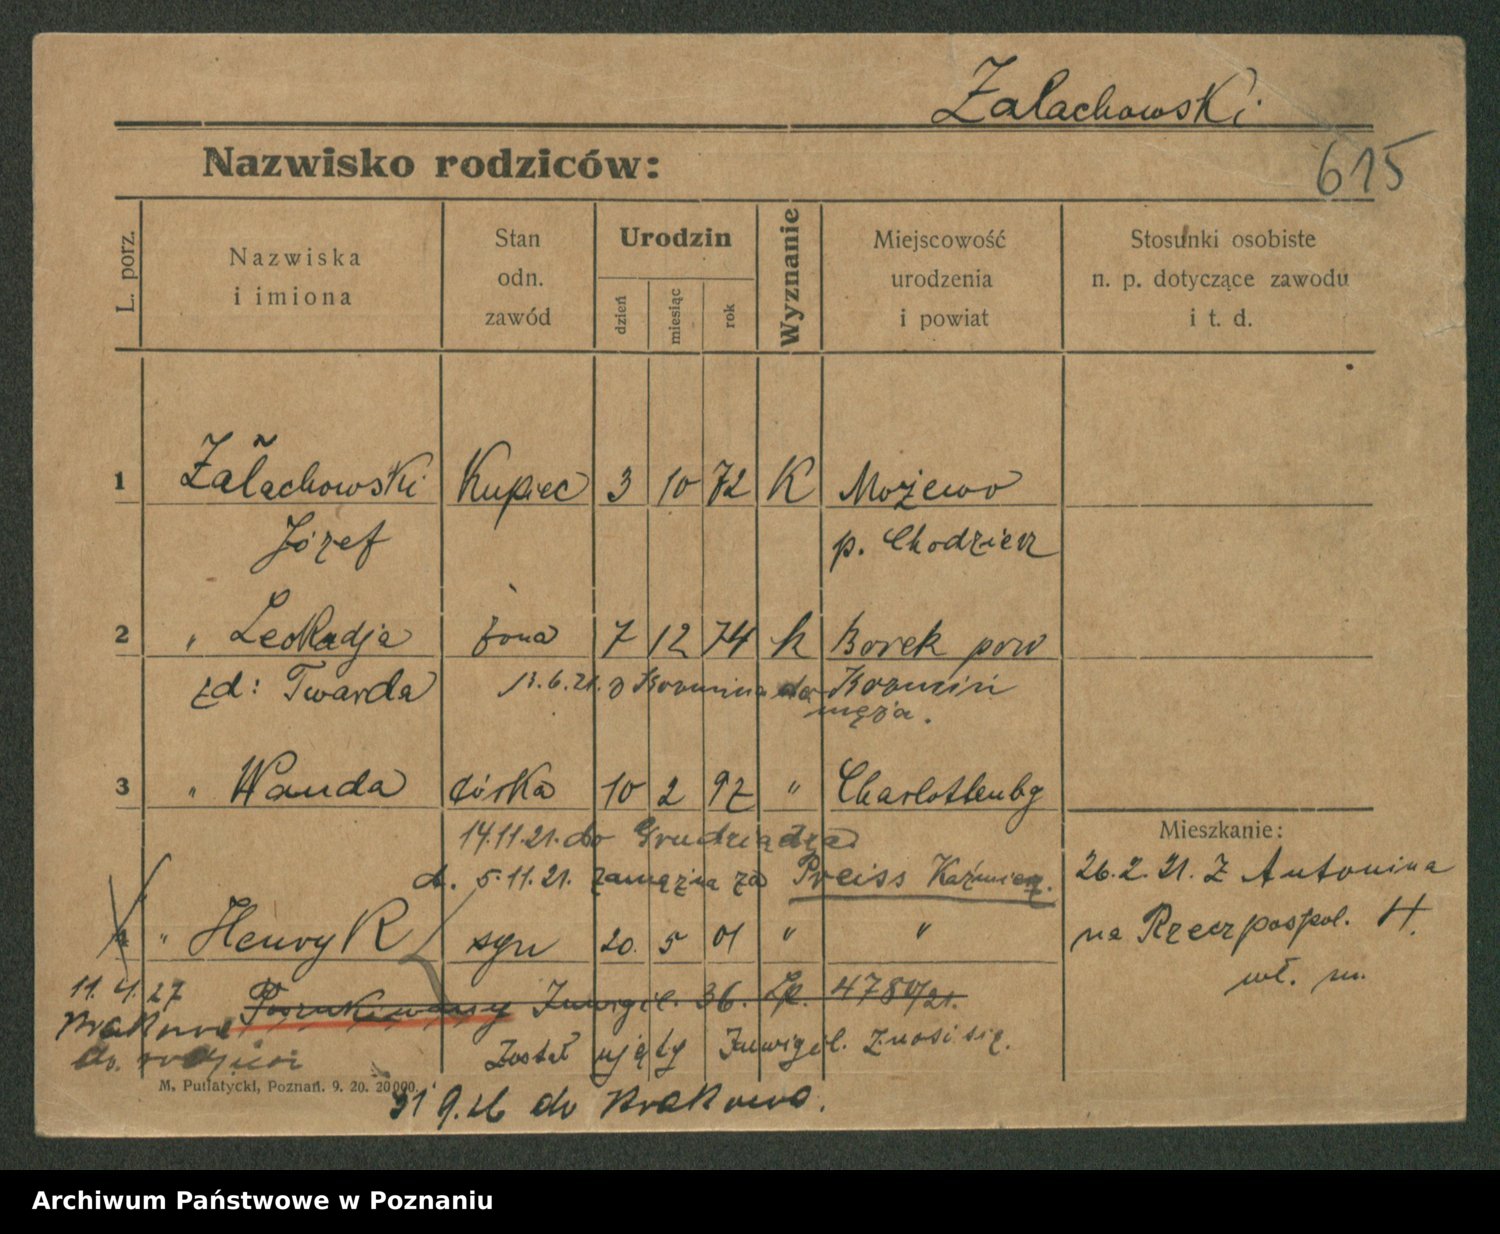 Żalachowski
Nazwisko rodziców:
615
L. porz.
Nazwiska
i imiona
Stan
odn.
zawód
Urodzin
dzień
miesiąc
rok
Wyznanie
Miejscowość
urodzenia
i powiat
Stosunki osobiste
n. p. dotyczące zawodu
i t. d.
1 Żalachowski Kupiec 3 10 72 K Możewo
Józef p. Chodzież
2 " Leokadja żona 7 12 74 k Borek pow
zd: Twarda 13.6.21. z Kozmina do Kozmin
męża.
3 " Wanda córka 10 2 97 " Charlottenbg
14.11.21. do Grudziądza
Mieszkanie:
d. 5.11.21. zamężna za Preiss Kaźmierz.
26.2.21. z Antonina
na Rzeczpospol. 4.
wł. m.
4 " Henryk syn 20. 5 01 " "
11.4.27 Poszukiwany Inwigil. 36. Lp. 4780/21.
Krakowa
do rodzici
Został ujęty Inwigil. znosi się.
M. Putiatycki, Poznań. 9. 20. 20000.
9.26 do Krakowa.
Archiwum Państwowe w Poznaniu